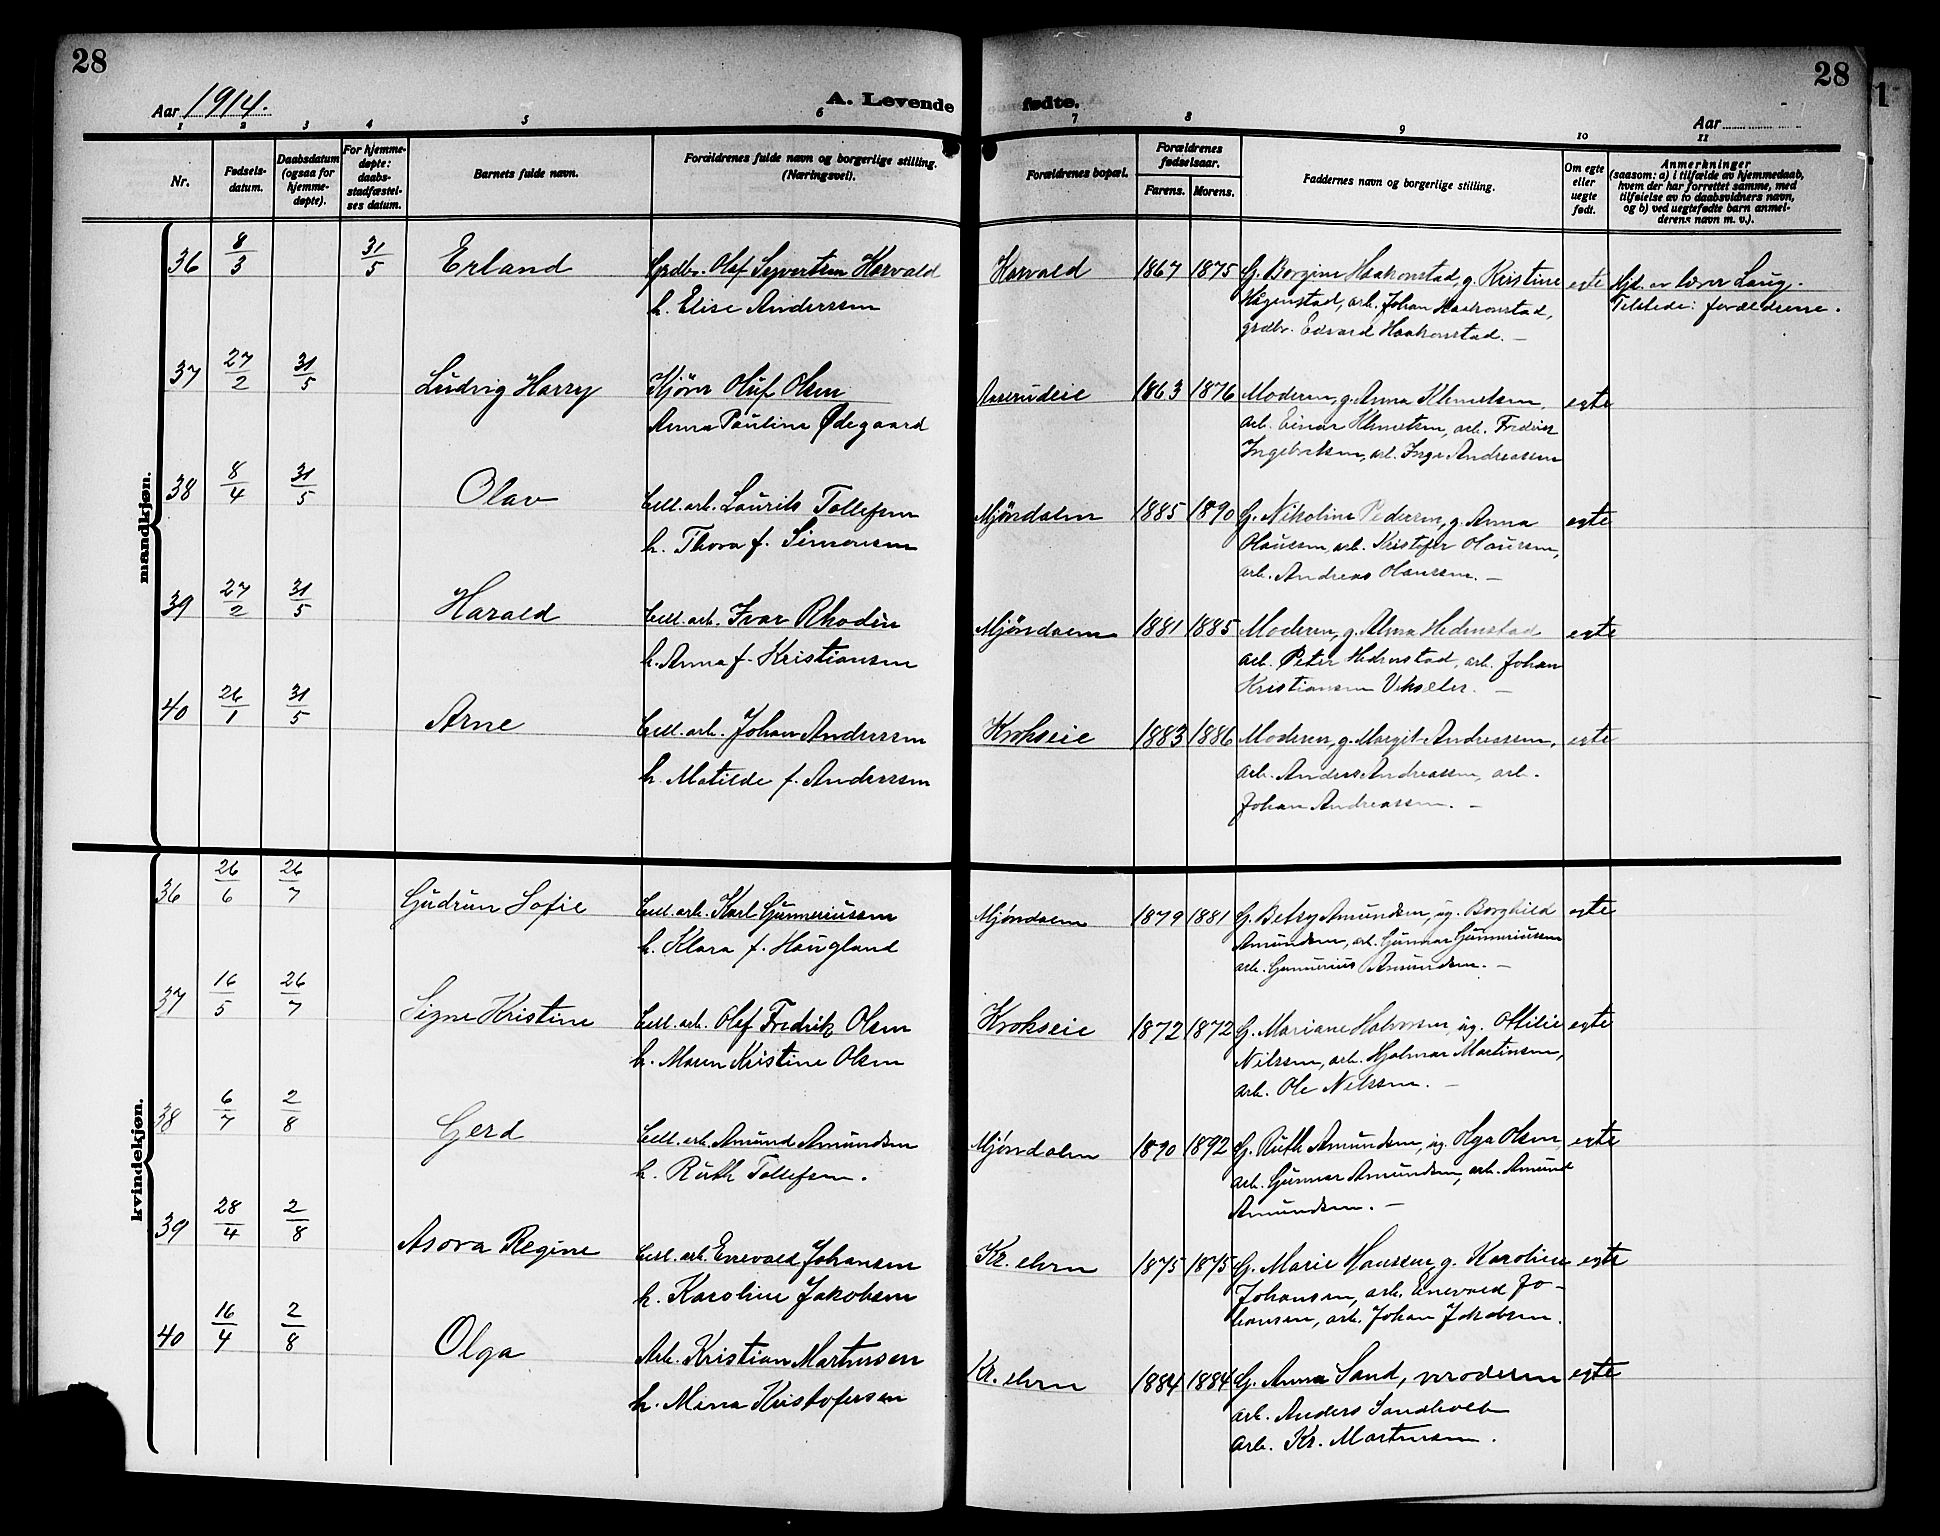 28
28
Aar 1914.
A. Levende
fødte.
Aar
1 2 3 4 5 6 7 8 9 10 11
Nr.
Fødsels-
datum.
Daabsdatum
(ogsaa for
hjemme-
døpte).
For hjemme-
døpte:
daabs-
stadfæstel-
ses datum.
Barnets fulde navn.
Forældrenes fulde navn og borgerlige stilling.
(Næringsvei).
Forældrenes bopæl.
Forældrenes
fødselsaar.
Farens. Morens.
Faddernes navn og borgerlige stilling.
Om egte
eller
uegte
født.
Anmerkninger
(saasom: a) i tilfælde av hjemmedaab,
hvem der har forrettet samme, med
tilføielse av to daabsvidners navn,
og b) ved uegtefødte barn anmel-
derens navn m. v.).
mandkjøn.
36 8/3 31/5 Erland Grdbr. Olaf Syvertsen Horvald Horvald 1867 1875 G. Borgine Haakonstad, g. Kristine egte Hjd. av lærer Laug.
h. Elise Anderssen Hågenstad, arb. Johan Haakonstad, Tilstede: forældrene.
grdbr. Edvard Haakonstad. —
37 27/2 31/5 Ludvig Harry Kjører Oluf Olsen Aaserudeie 1863 1876 Moderen, g. Anna Klemetsen, egte
Anna Pauline Ødegaard arb. Einar Klemetsen, arb. Fredrik
Ingebretsen, arb. Inga Andreassen
38 8/4 31/5 Olav Cell. arb. Laurits Tollefsen Mjøndalen 1885 1890 G. Nikoline Pedersen, g. Anna egte
h. Thora f. Simonsen Hanssen, arb. Kristofer Hanssen,
arb. Andreas Hanssen. —
39 27/2 31/5 Harald Cell. arb. Ivar Rhodin Mjøndalen 1881 1885 Moderen, g. Alma Hedenstad egte
h. Anna f. Kristiansen arb. Peter Hedenstad, arb. Johan
Kristiansen Veksler. —
40 26/1 31/5 Arne Cell. arb. Johan Anderssen Krokseie 1883 1886 Moderen, g. Margit Andreassen, egte
h. Matilde f. Anderssen arb. Anders Andreassen, arb.
Johan Andreassen. —
kvindekjøn.
36 26/6 26/7 Gudrun Sofie Cell. arb. Karl Gunneriussen Mjøndalen 1879 1881 G. Betsy Amundsen, ug. Borghild egte
h. Klara f. Haugland Amundsen, arb. Gunnar Gunneriussen
arb. Gunnerius Amundsen. —
37 16/5 26/7 Signe Kristine Cell. arb. Olaf Fredrik Olsen Krokseie 1872 1872 G. Mariane Halvorsen, ug. Ottilie egte
h. Maren Kristine Olsen Nilssen, arb. Hjalmar Martinsen,
arb. Ole Nilssen. —
38 6/7 2/8 Gerd Cell. arb. Amund Amundsen Mjøndalen 1890 1892 G. Ruth Amundsen, ug. Olga Olsen, egte
h. Ruth Tollefsen. arb. Gunnar Amundsen, arb. Amund
Amundsen. —
39 28/4 2/8 Asora Regine Cell. arb. Enevald Johansen Kr. elven 1875 1875 G. Marie Hanssen, g. Karoline egte
h. Karoline Jakobsen Johansen, arb. Enevald Jo-
hansen, arb. Johan Jakobsen.
40 16/4 2/8 Olga Arb. Kristian Martinsen Kr. elven 1884 1884 G. Anna Sand, moderen egte
h. Mina Kristofersen arb. Anders Sandholt
arb. Kr. Martinsen.